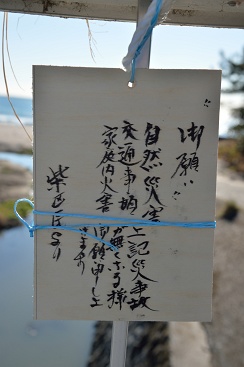 御願い
自然災害
交通事故
家庭内火害
上記災事故
が無くなる様
御願申し上
きます